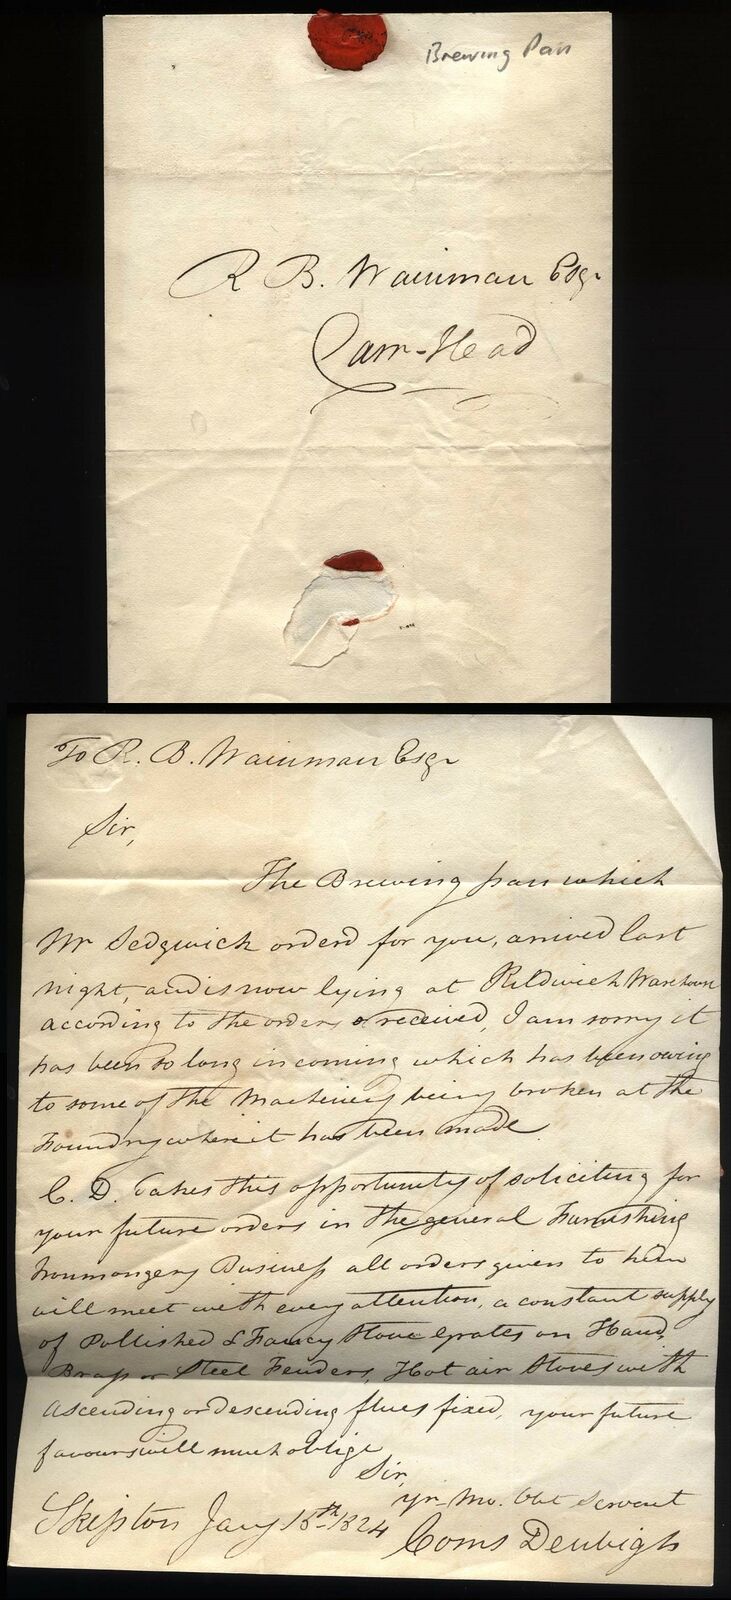 Brewing Pan
R B. Wainman Esqr
Carr-Head
To R. B. Wainman Esqr
Sir,
The Brewing pan which
Mr Sedgwick orderd for you, arrived last
night, and is now lying at Kildwick Warehouse
according to the orders received, I am sorry it
has been so long in coming which has been owing
to some of the Machinery being broken at the
Foundry where it has been made
C. D. takes this opportunity of soliciting for
your future orders in the general Furnishing
Ironmongery Business all orders given to him
will meet with every attention, a constant supply
of Pollished & Fancy Stove Grates on Hand,
Brass or Steel Fenders, Hot air Stoves with
Ascending or descending flues fixed, your future
favours will much oblige
Sir,
yr. Mo. Obt Servant
Skipton Jany 15th 1824
Denbigh